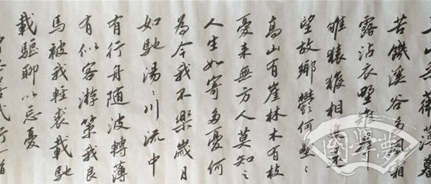 山采薇薄暮
苦饑溪谷多風霜
露沾衣野雉群
雊猿猴相追還
望故鄉鬱何壘々
高山有崖林木有枝
憂來無方人莫知之
人生如寄多憂何
為今我不樂歲月
如馳湯々川流中
有行舟隨波轉薄
有似客游策我良
馬被我輕裘載馳
載驅聊以忘憂